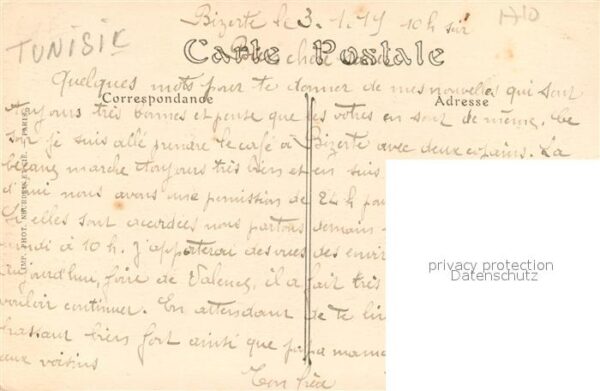 Bizerte le 3.1.19 10h soir
TUNISIE
Carte Postale
Bien chère
Quelques mots pour te donner de mes nouvelles qui sont
Correspondance
Adresse
toujours très bonnes et pense que les votres en sont de même. Ce
soir je suis allé prendre le café à Bizerte avec deux copains. La
bécane marche toujours très bien et en suis
d'hui nous avons une permission de 24 h pou
Si elles sont accordées nous partons demain
à 10 h. J'apporterai des vues des envir
aujourd'hui, foire de Valence, il a fait très
vouloir continuer. En attendant de te li
t'embrassant bien fort ainsi que papa maman
aux voisins
Ton frère
IMP. PHOT. PARIS
privacy protection
Datenschutz